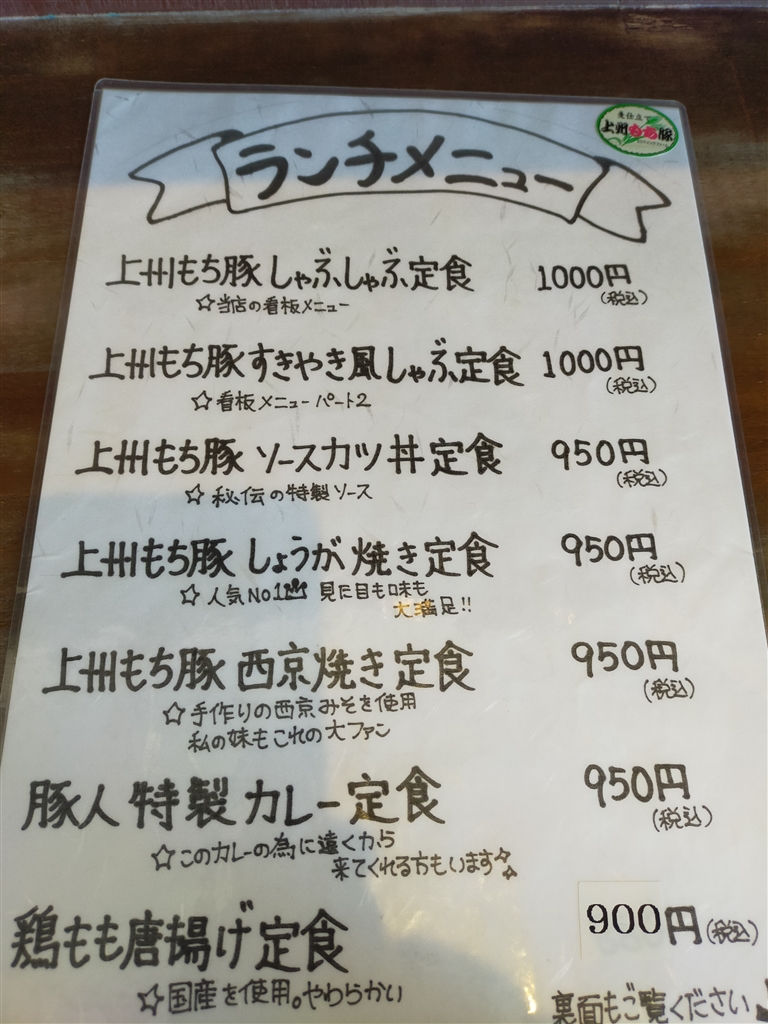 上州もち豚
ランチメニュー
上州もち豚しゃぶしゃぶ定食 1000円
☆当店の看板メニュー (税込)
上州もち豚すきやき風しゃぶ定食 1000円
☆看板メニューパート2 (税込)
上州もち豚 ソースカツ丼定食 950円
☆秘伝の特製ソース (税込)
上州もち豚 しょうが焼き定食 950円
☆人気No1 見た目も味も (税込)
大満足!!
上州もち豚 西京焼き定食 950円
☆手作りの西京みそを使用 (税込)
私の妹もこれの大ファン
豚人 特製カレー定食 950円
☆このカレーの為に遠くから (税込)
来てくれる方もいます☆
鶏もも唐揚げ定食 900円(税込)
☆国産を使用。やわらかい
裏面もご覧ください